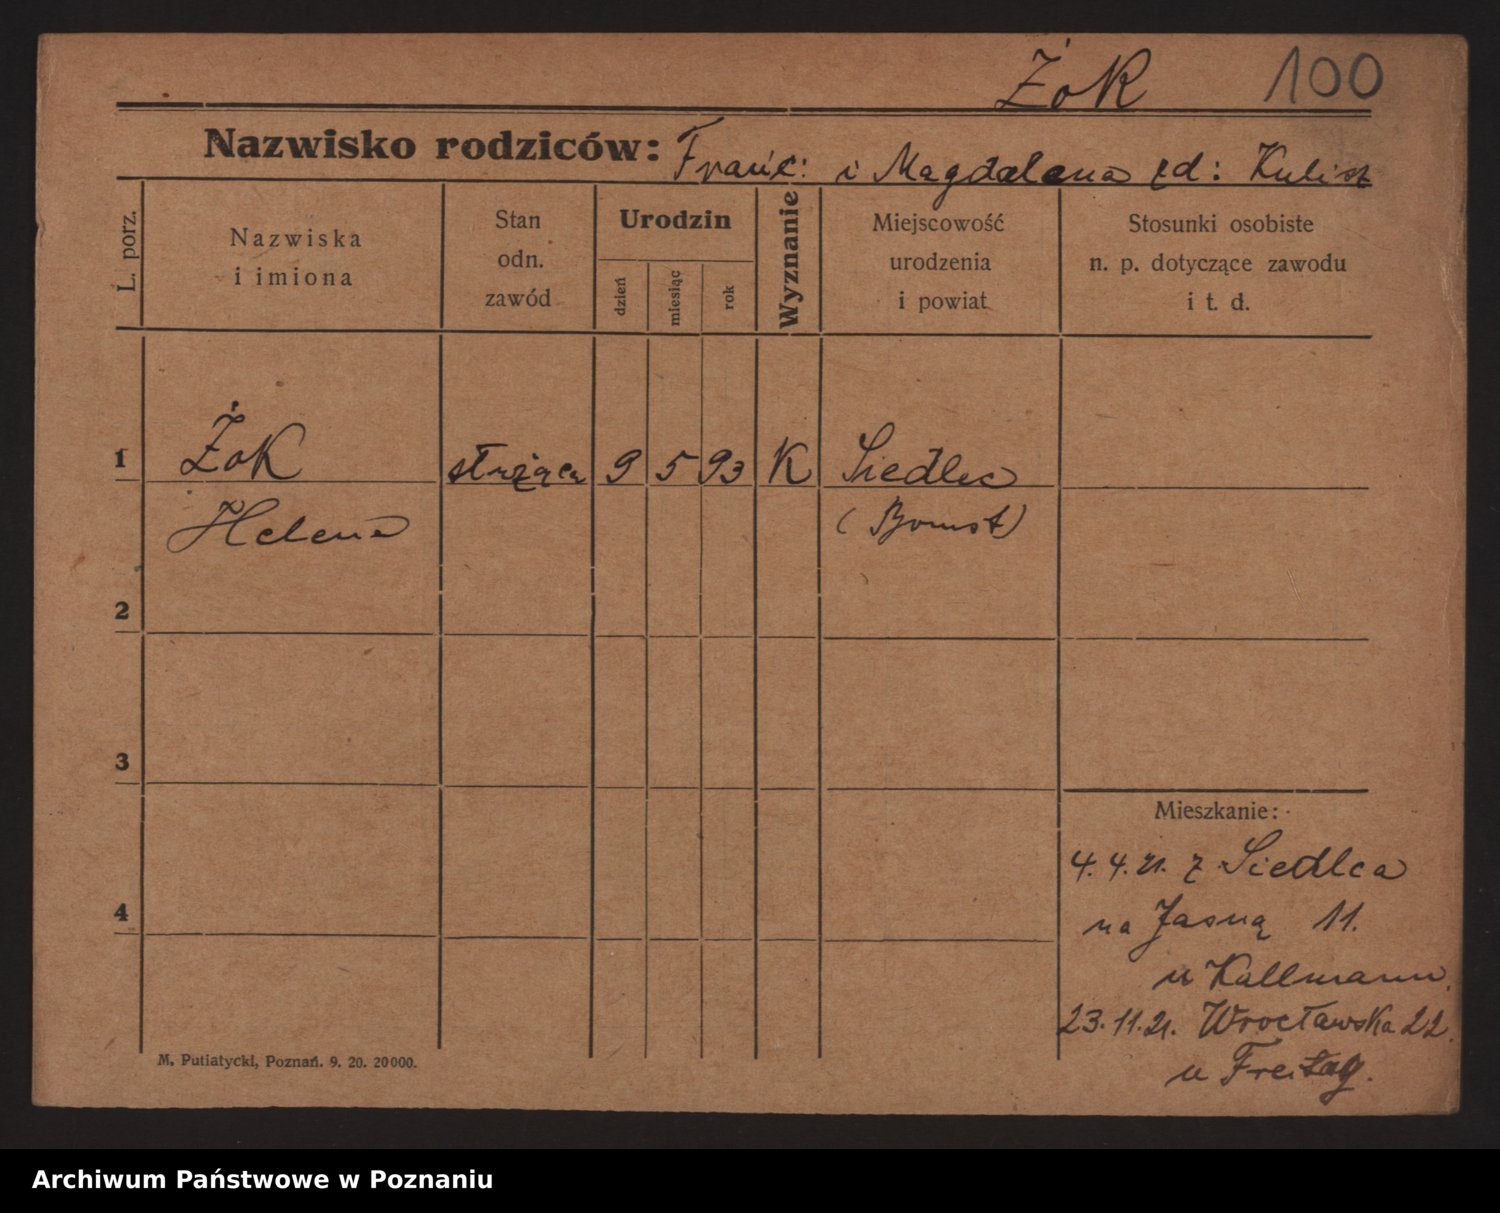 Żok 100
Nazwisko rodziców: Franc: i Magdalena zd: Kulisz
L. porz.
Nazwiska
i imiona
Stan
odn.
zawód
Urodzin
dzień
miesiąc
rok
Wyznanie
Miejscowość
urodzenia
i powiat
Stosunki osobiste
n. p. dotyczące zawodu
i t. d.
1 Żok służąca 9 5 93 K Siedlec
Helena (Bomst)
2
3
Mieszkanie:
4. 4. 21. z Siedlca
4
na Jasną 11.
u Kallmann.
23. 11. 21. Wrocławska 22.
u Freitag.
M. Putiatycki, Poznań. 9. 20. 20000.
Archiwum Państwowe w Poznaniu